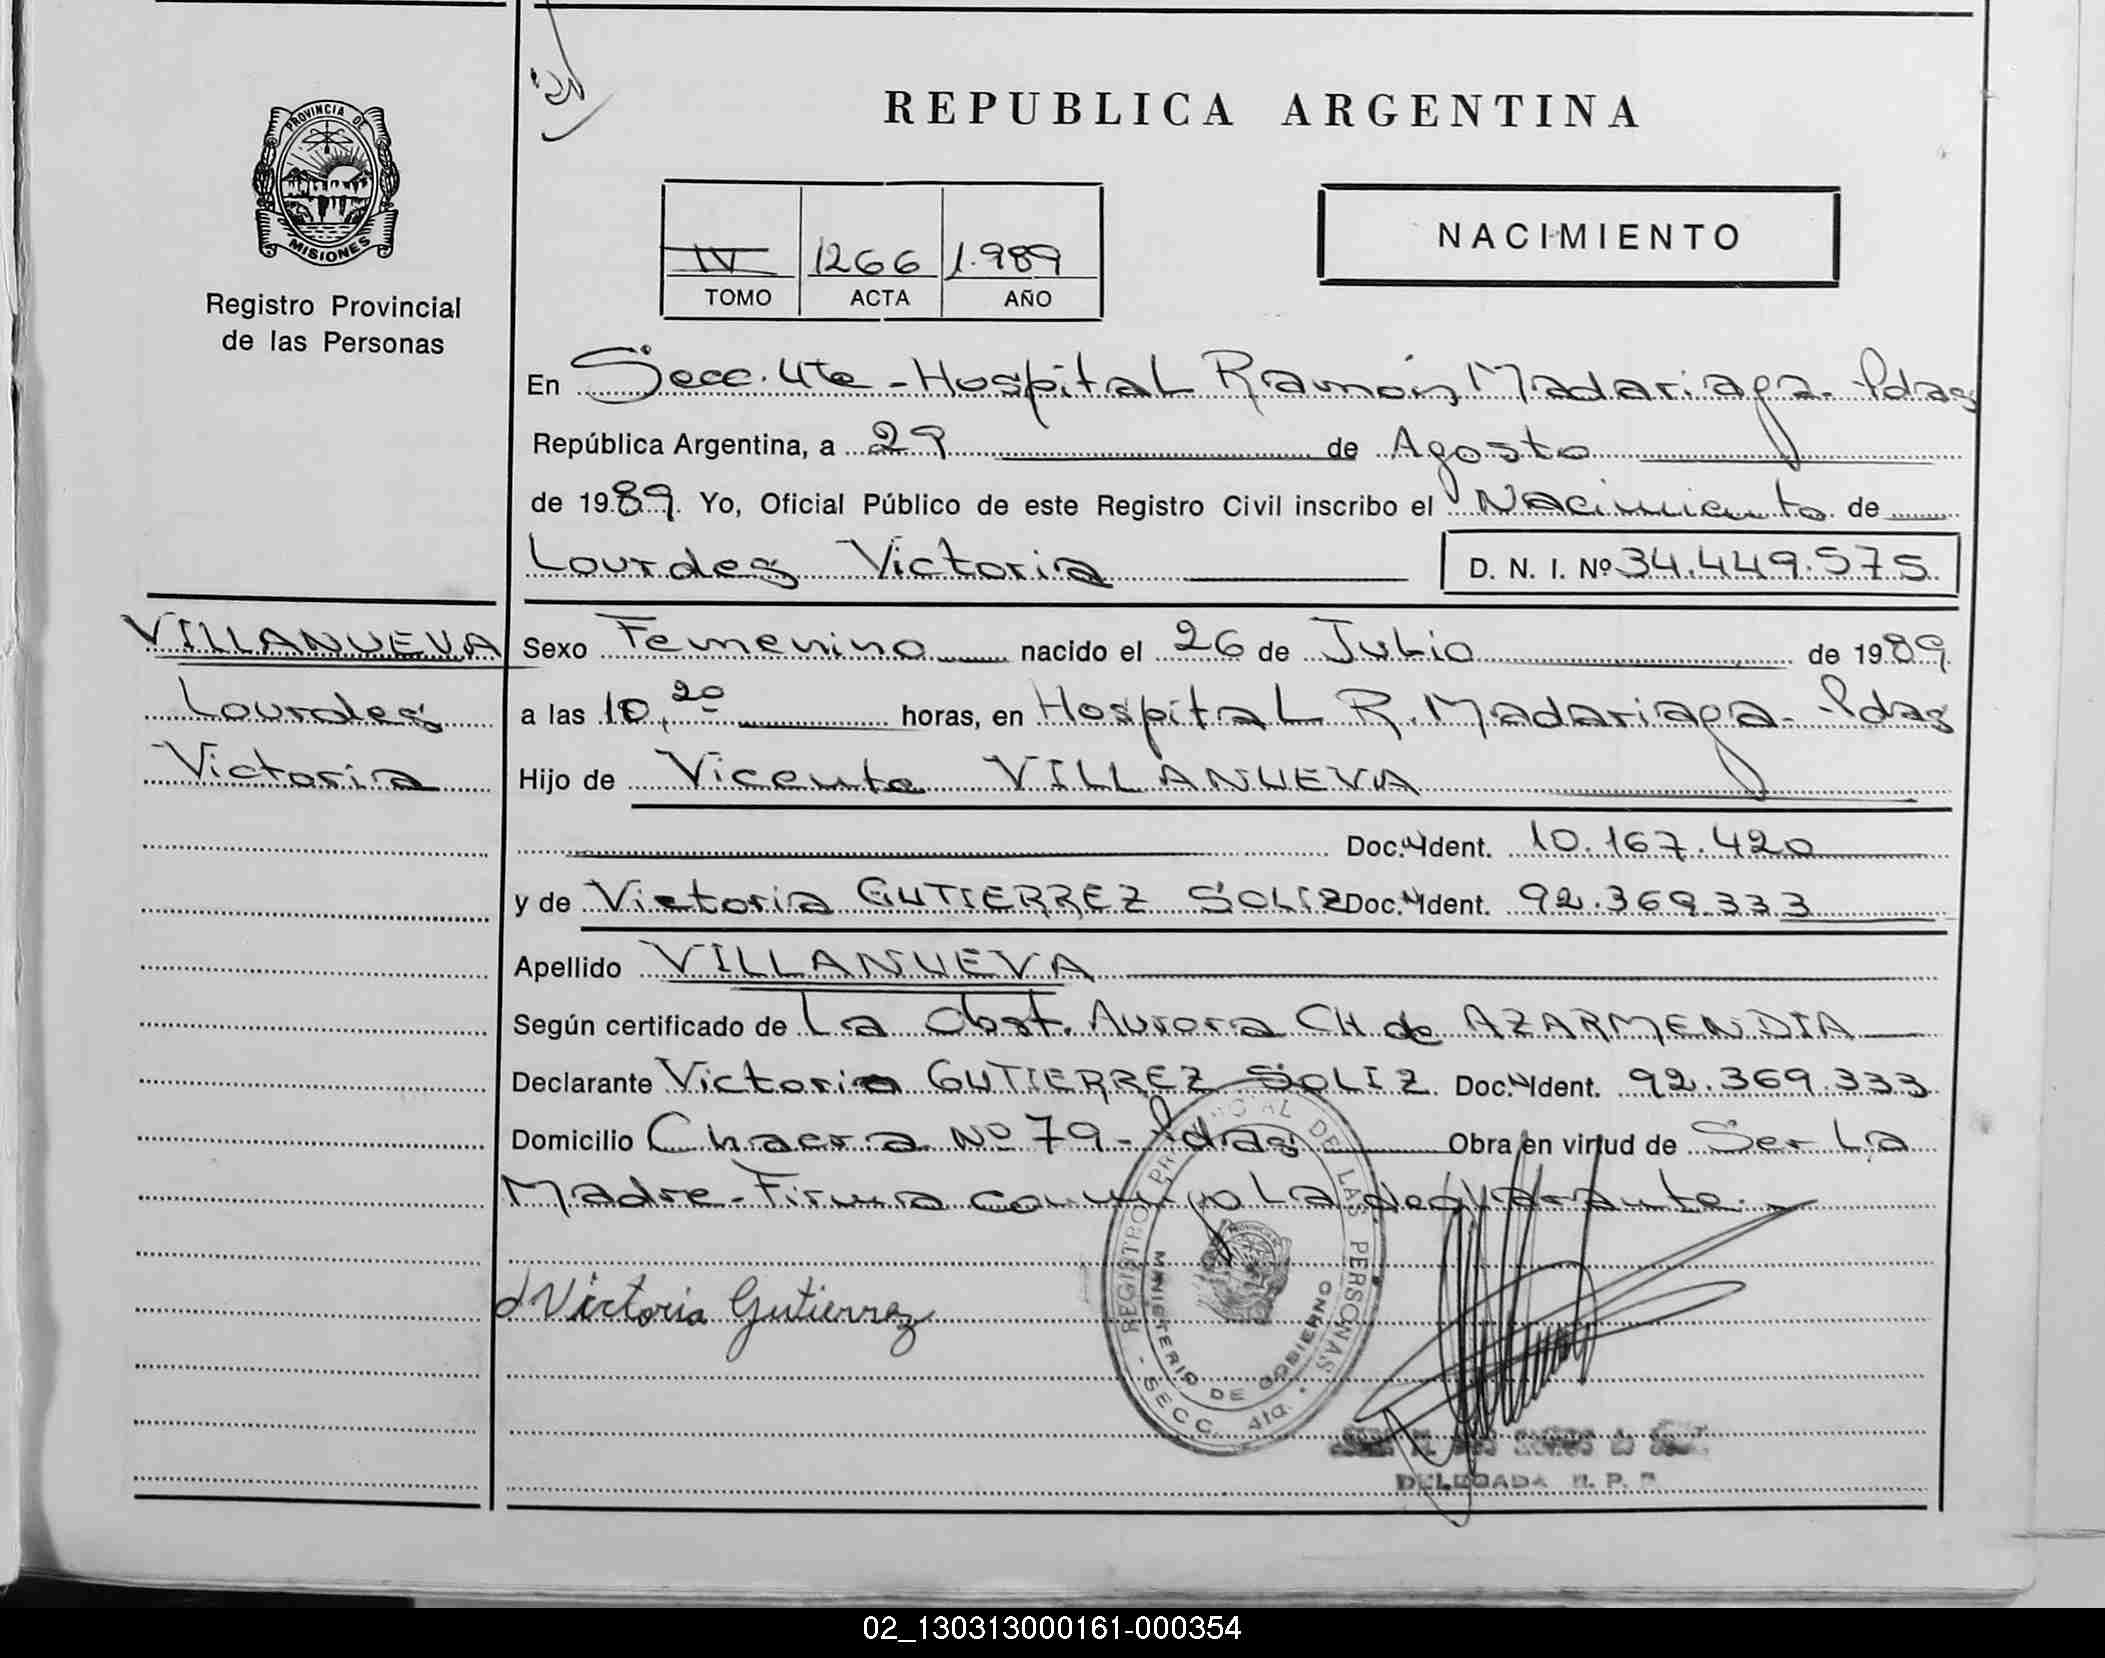 REPUBLICA ARGENTINA
PROVINCIA DE
MISIONES
Registro Provincial
de las Personas
IV 1266 1.989
TOMO ACTA AÑO
NACIMIENTO
En Secc. 4ta - Hospital Ramón Madariaga - Pdas
República Argentina, a 29 de Agosto
de 1989. Yo, Oficial Público de este Registro Civil inscribo el Nacimiento de
Lourdes Victoria D. N. I. Nº 34.449.575
VILLANUEVA
Lourdes
Victoria
Sexo Femenino nacido el 26 de Julio de 1989
a las 10,20 horas, en Hospital R. Madariaga - Pdas
Hijo de Vicente VILLANUEVA
Doc. Ident. 10.167.420
y de Victoria GUTIERREZ SOLIZ Doc. Ident. 92.369.333
Apellido VILLANUEVA
Según certificado de La Obst. Aurora CH de AZARMENDIA
Declarante Victoria GUTIERREZ SOLIZ Doc. Ident. 92.369.333
Domicilio Chacra Nº 79 - Pdas Obra en virtud de Ser La
Madre - Firma conmigo La declarante.
Victoria Gutierrez
REGISTRO PROVINCIAL DE LAS PERSONAS
MINISTERIO DE GOBIERNO
- SECC. 4ta. -
DELEGADA R. P. P.
02_130313000161-000354